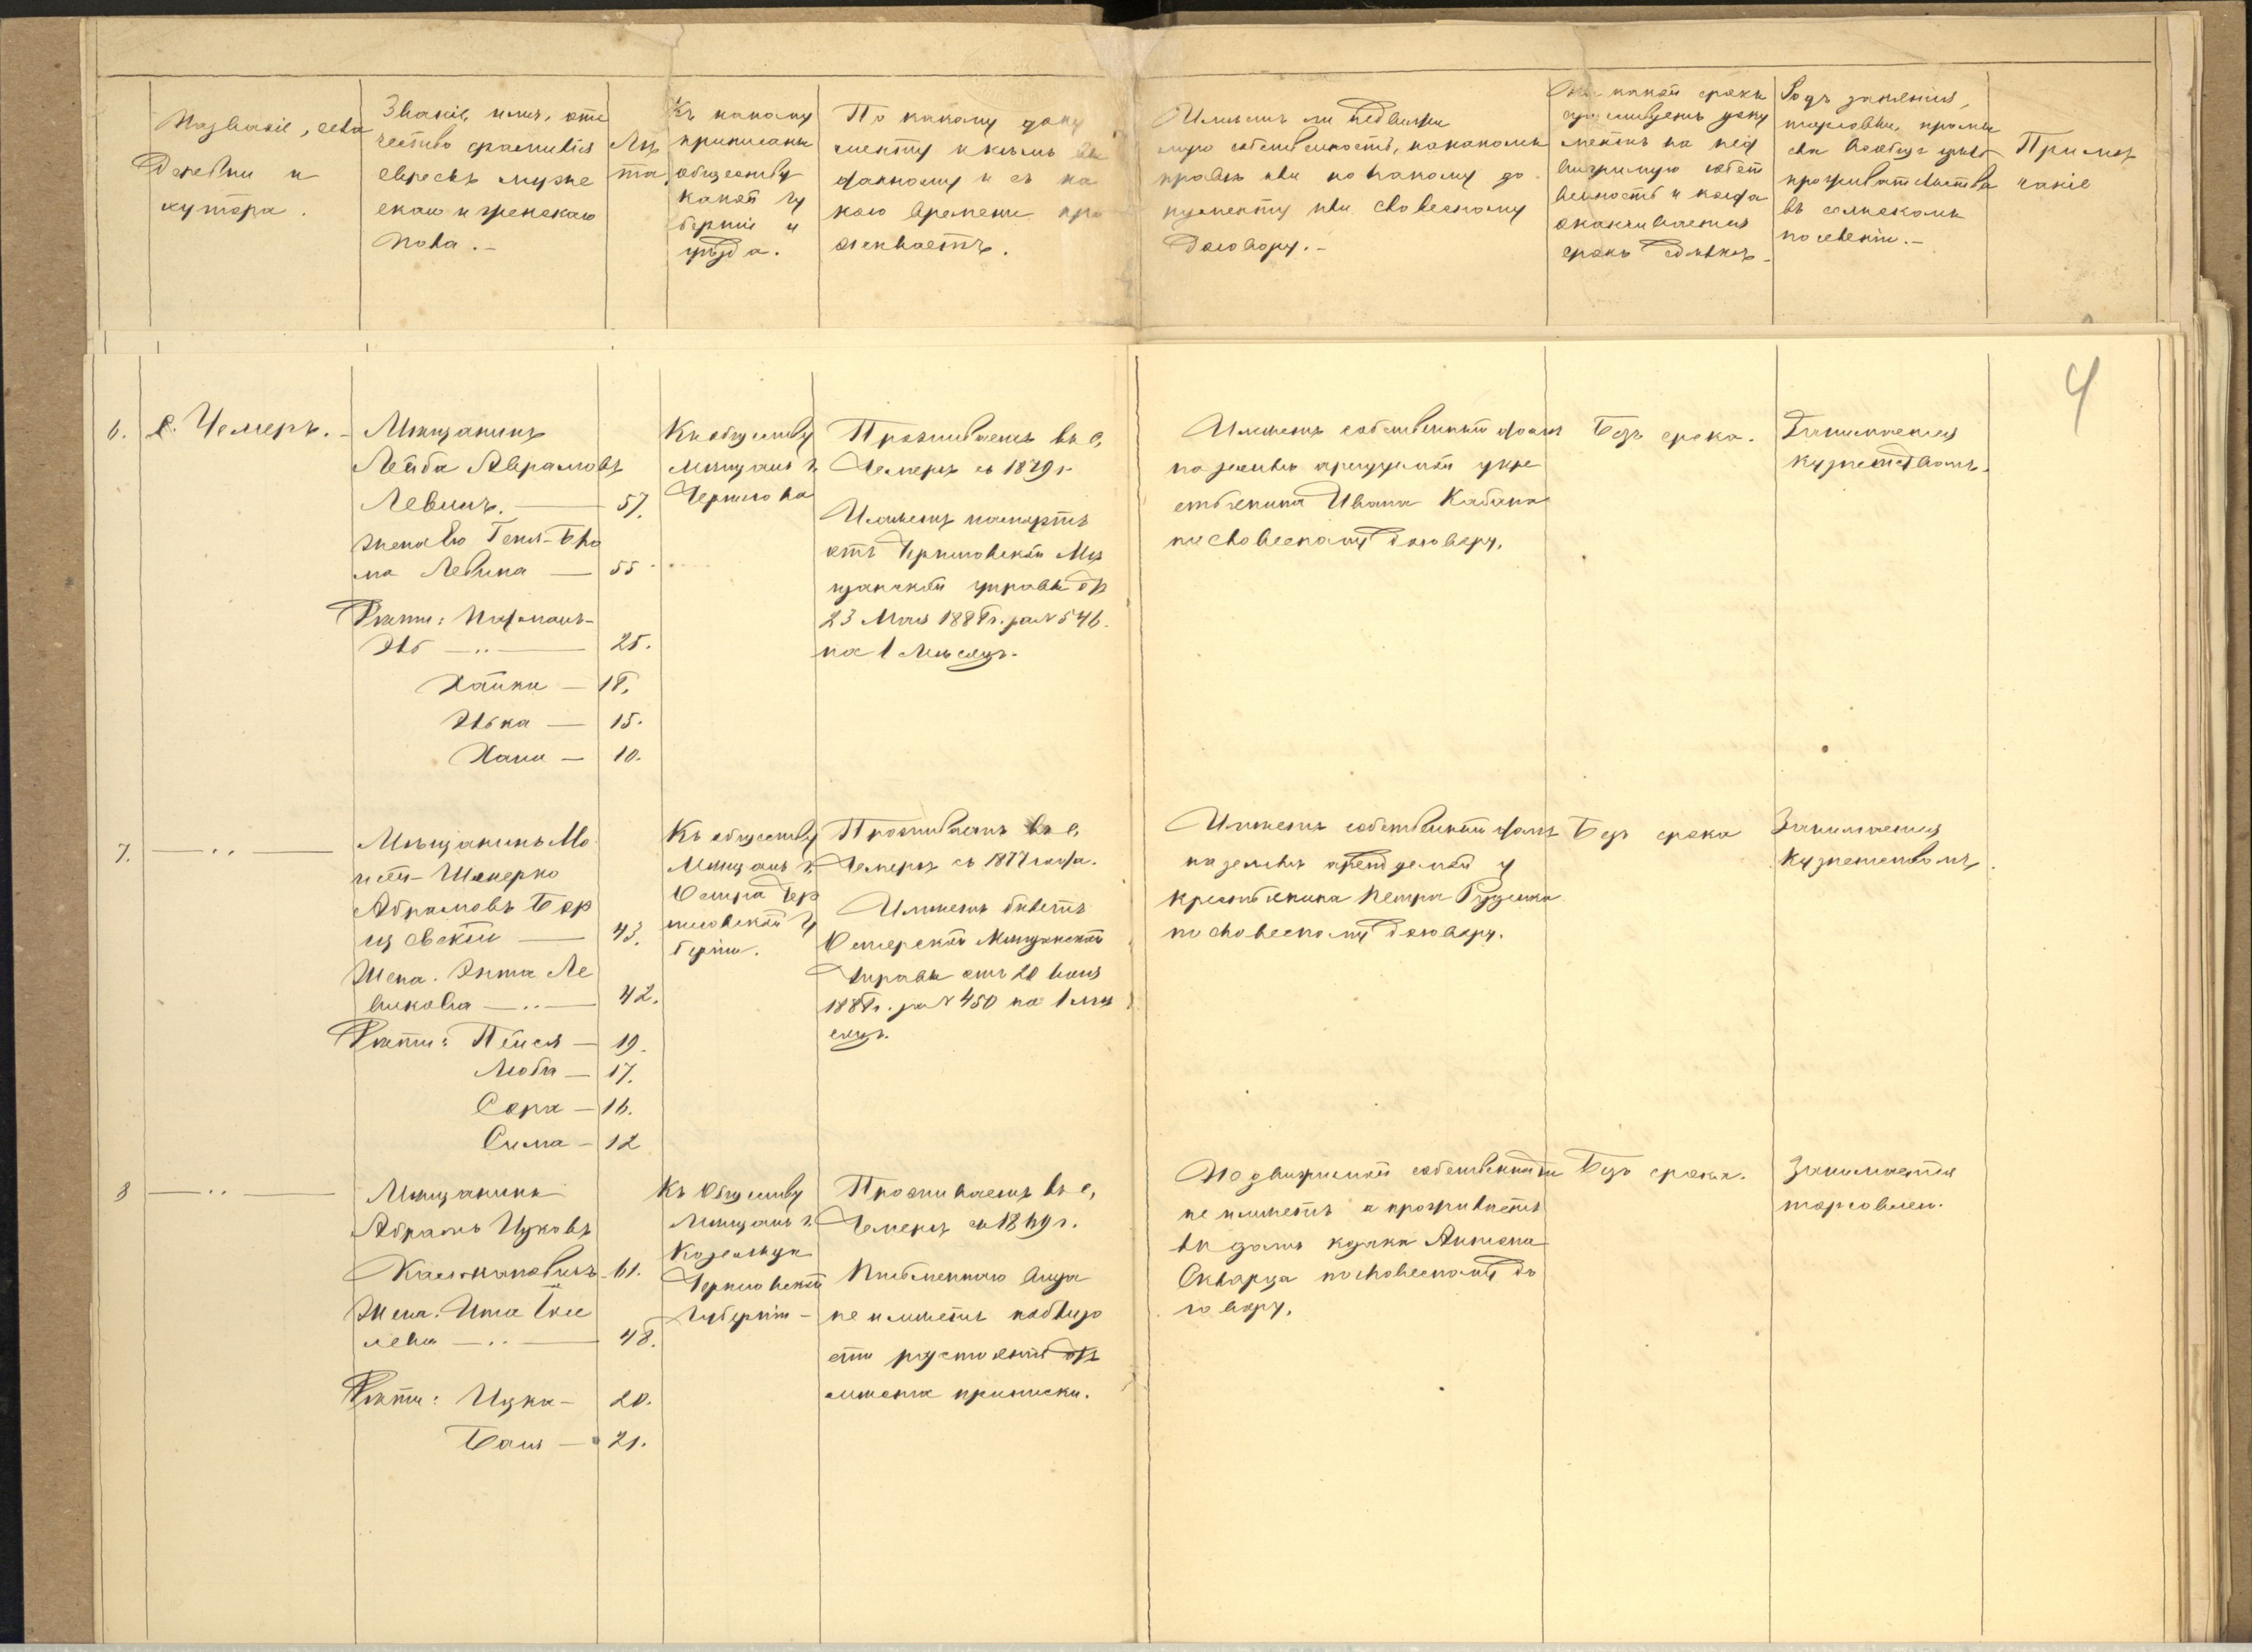 Названіе, села
Деревни и
хутора.
Званіе, имя, отче
чество фамилія
евреевъ муже
скаго и женскаго
пола.
Лѣ
та
Къ какому
приписаны
обществу
какой гу
берніи и
уѣзда.
По какому доку
менту и кѣмъ вы
данному и съ ка
кого времени про
живаетъ.
Имѣетъ ли недвижи
мую собственность, на какомъ
правѣ или по какому до
кументу или словесному
договору.
На какой срокъ
документъ на нед
вижимую собст
венность и когда
оканчивается
срокъ сдѣлкѣ
Родъ занятія,
торговли, промы
сла вообще
въ сельскомъ
поселеніи.
Примѣ
чаніе
4
6. с. Чемеръ.
Мѣщанинъ
Лейба Аврамовъ
Левинъ. 57.
жена его Геня-Бло
ма Левина 55
Дѣти: Нахманъ-
25.
Хайка 18.
Элька 15.
Хана 10.
Къ обществу
мѣщанъ г.
Чернигова
Проживаетъ въ с.
Чемерѣ съ 1879 г.
Имѣетъ паспортъ
отъ Черниговской Мѣ
щанской управы отъ
23 Мая 1888 г. за № 546.
на 1 Мѣсяцъ.
Имѣетъ собственный домъ
на землѣ арендуемой у кре
стьянина Ивана Кабана
по словесному договору.
Безъ срока.
Занимается
кузнечествомъ.
7. — ″ —
Мѣщанинъ Мо
Шмерко
Абрамовъ Бор
щевскій 43.
Жена. Энта Ле
викова 42.
Дѣти: Пейся 19.
Люба 17.
Сора 16.
Сима 12
Къ обществу
Мѣщанъ г.
Остра Чер
ниговской Гу
берніи.
Проживаетъ въ с.
Чемерѣ съ 1877 года.
Имѣетъ билетъ
Остерской Мѣщанской
Управы отъ 20 Іюня
1888 г. за № 450 на 1 мѣ
сяцъ.
Имѣетъ собственный домъ
на землѣ арендуемой у
крестьянина Петра Руденка
по словесному договору.
Безъ срока
Занимается
кузнечествомъ.
8 — ″ —
Мѣщанинъ
Абрамъ Ицковъ
Калмановичъ 61.
Жена. Ита
лева 48.
Дѣти: Ицка 20.
Бася 21.
Къ Обществу
Мѣщанъ г.
Козельца
Черниговской
Губерніи
Проживаетъ въ с.
Чемерѣ съ 1869 г.
Письменного вида
не имѣетъ по близо
сти разстоянія отъ
мѣста приписки.
Недвижимой собственности
не имѣетъ а проживаетъ
въ домѣ козака Антона
Скварца по словесному до
говору.
Безъ срока.
Занимается
торговлею.